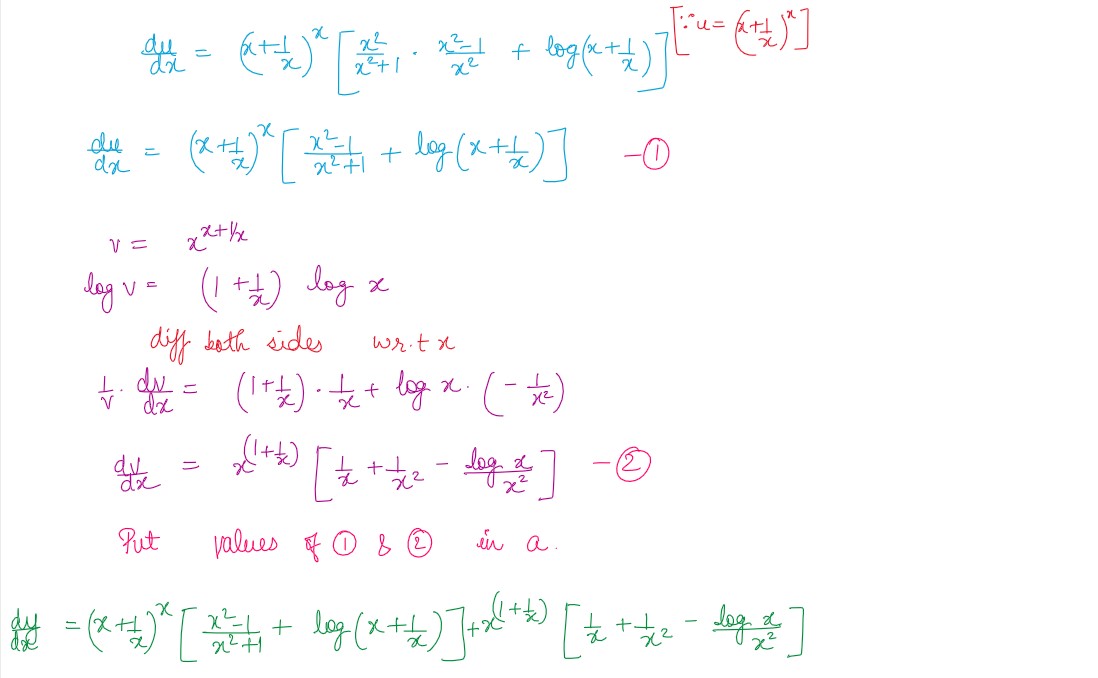 du/dx = (x+1/x)^x [x²/x²+1 · x²-1/x² + log(x+1/x)] [∵ u = (x+1/x)^x]
du/dx = (x+1/x)^x [x²-1/x²+1 + log(x+1/x)] -①
v = x^x+1/x
log v = (1+1/x) log x
diff both sides w.r.t x
1/v · dv/dx = (1+1/x) · 1/x + log x · (-1/x²)
dv/dx = x^(1+1/x) [1/x + 1/x² - log x/x²] -②
Put values of ① & ② in a.
dy/dx = (x+1/x)^x [x²-1/x²+1 + log(x+1/x)] + x^(1+1/x) [1/x + 1/x² - log x/x²]